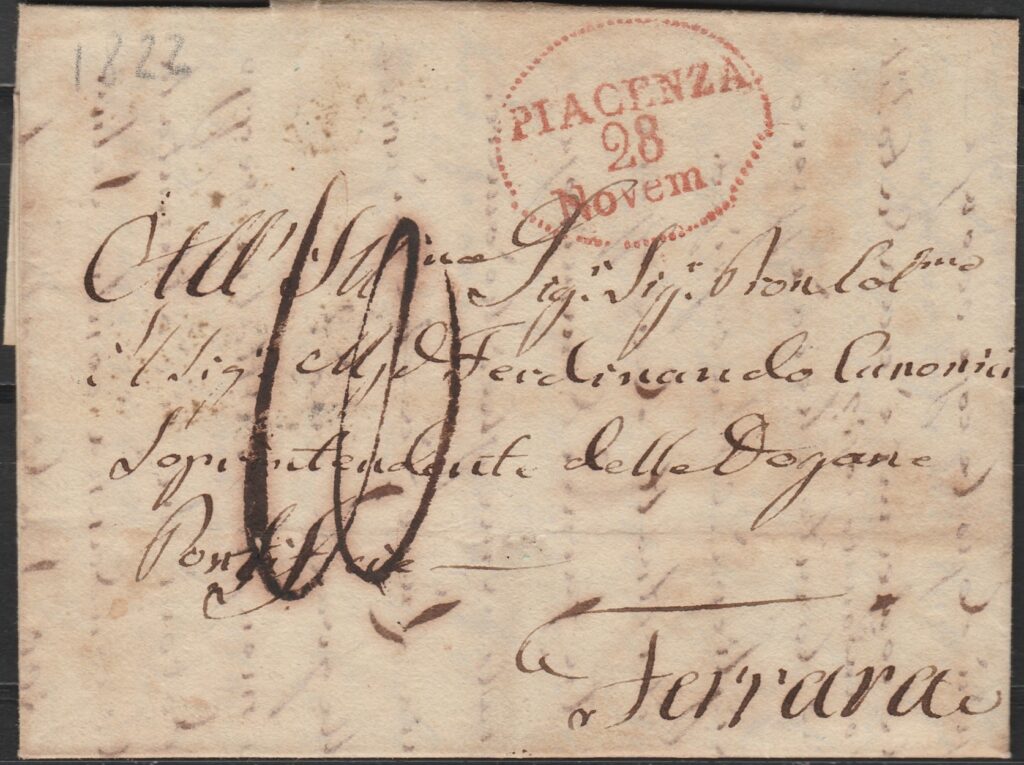 1822
PIACENZA
28
Novem
All' Ill.mo Sig.r Sig.r Pron Col.mo
il Sig.r Ferdinando Canonici
Soprintendente delle Dogane
Pontificie
Ferrara